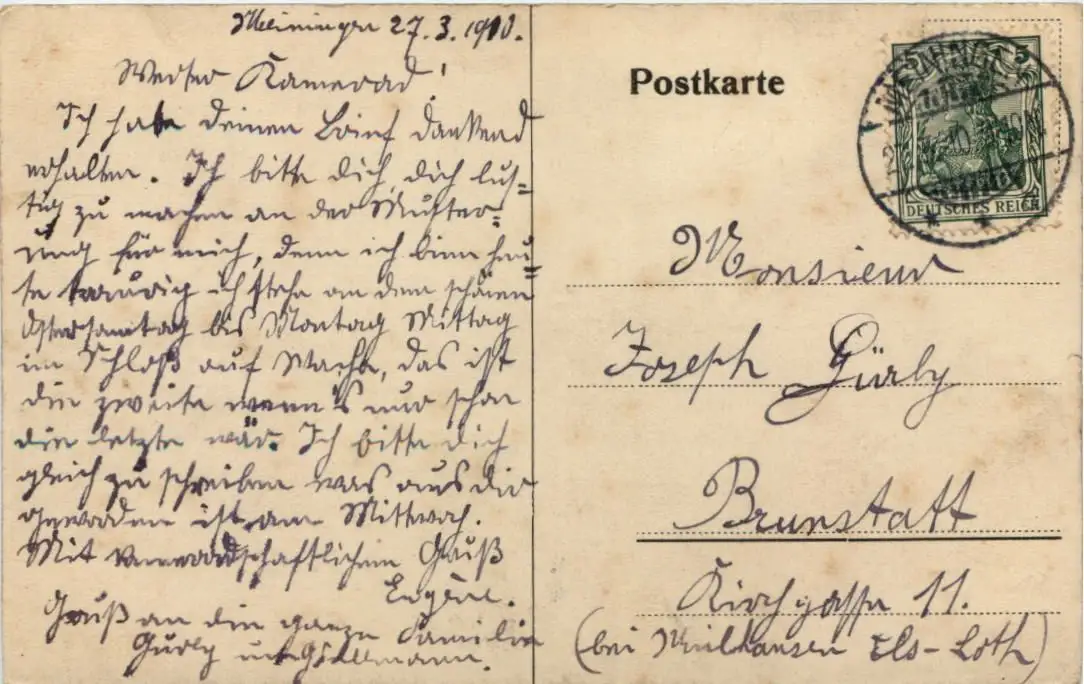 Meiningen 27.3.1910.
Werter Kamerad!
Ich habe deinen Brief dankend
erhalten. Ich bitte dich, dich lus=
tig zu machen an der Muster=
ung für mich, denn ich binn heu=
te traurig ich stehe an dem schönen
Ostersamtag bis Montag Mittag
im Schloß auf Wache, das ist
die zweite wenn's nur schon
die letzte wär. Ich bitte dich
gleich zu schreiben was aus dir
geworden ist am Mittwoch.
Mit kameradschaftlichem Gruß
Eugène.
Gruß an die ganze Familie
Gürly und
Postkarte
MEININGEN
DEUTSCHES REICH
Monsieur
Joseph Gürly
Brunstatt
Kirchgasse 11.
(bei Mülhausen Els-Loth)